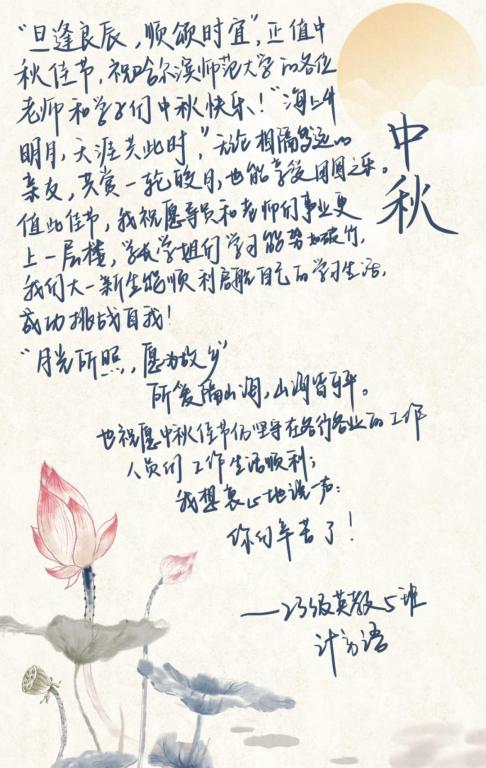 “旦逢良辰，顺颂时宜”，正值中
秋佳节，祝哈尔滨师范大学的各位
老师和学子们中秋快乐！“海上升
明月，天涯共此时，”无论相隔多远的
亲友，共赏一轮皎月，也能享受团圆之乐。
值此佳节，我祝愿导员和老师们事业更
上一层楼，学长学姐们学习能势如破竹，
我们大一新生能顺利启航自己的学习生活，
成功挑战自我！
“月光所照，愿为故乡”
所爱隔山海，山海皆可平。
也祝愿中秋佳节仍坚守在各行各业的工作
人员们工作生活顺利；
我想衷心地说一声：
你们辛苦了！
——23级英教5班
计语
中秋